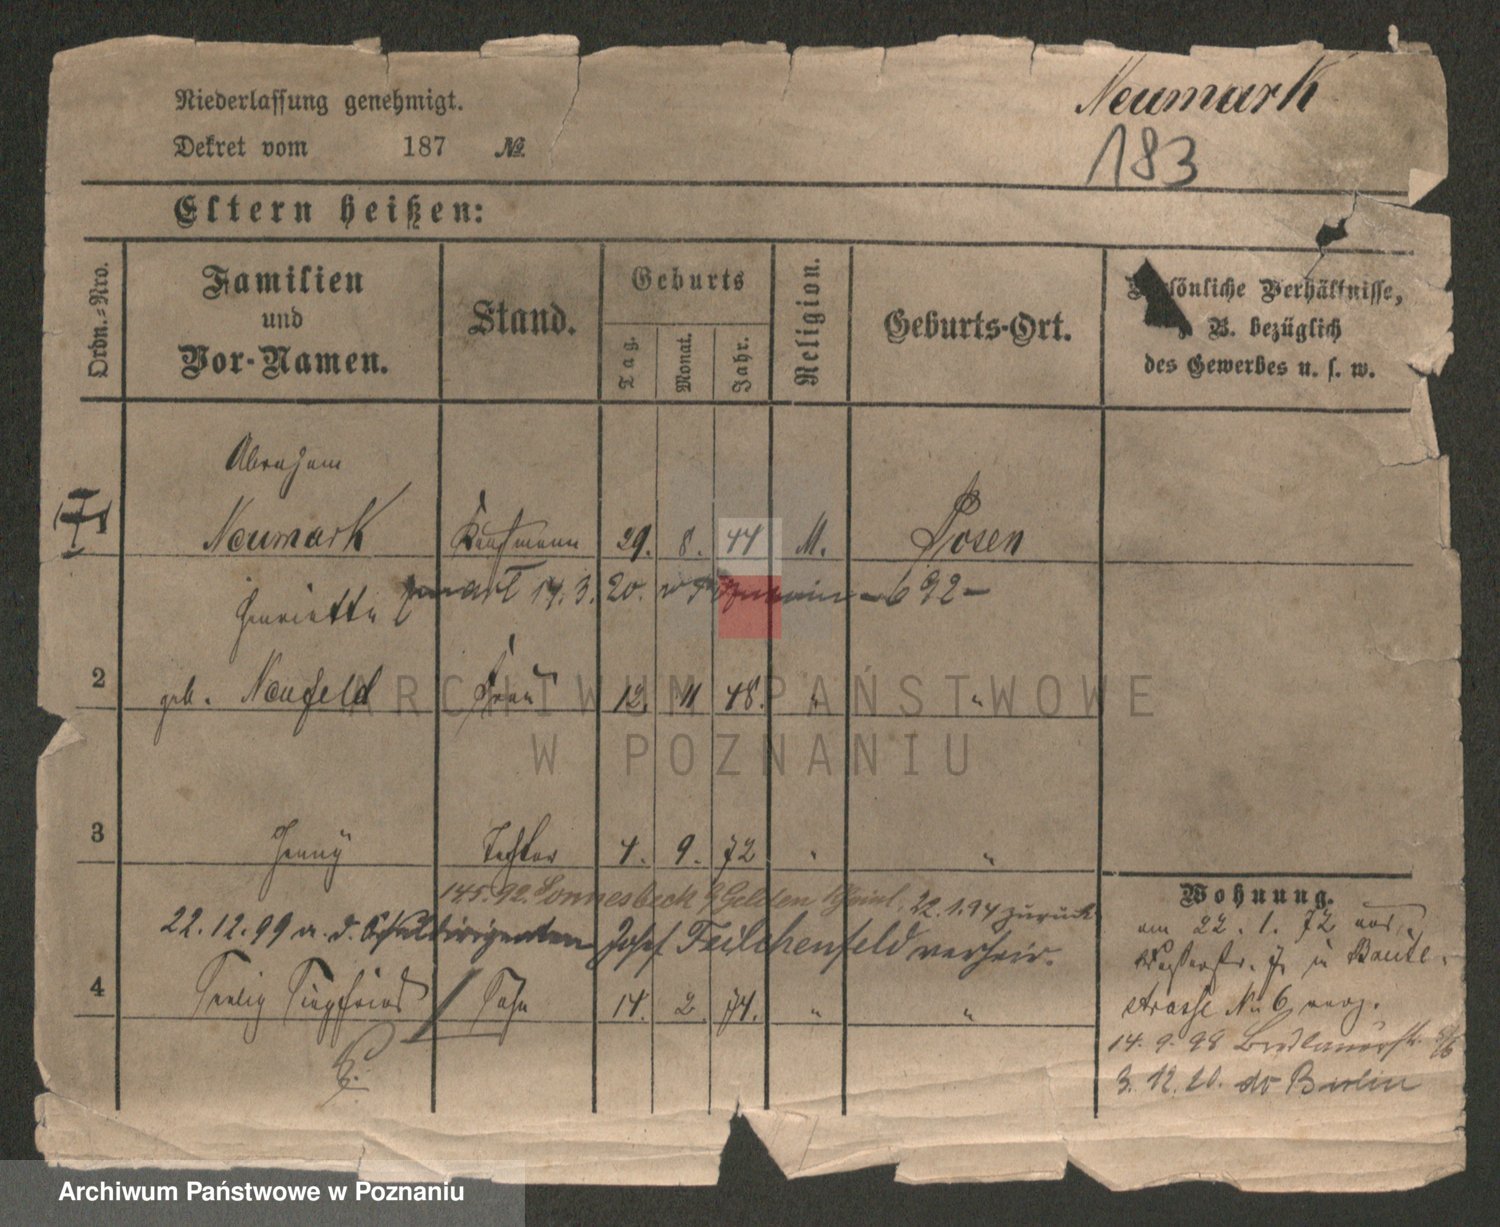 Niederlassung genehmigt.
Dekret vom 187 №
Neumark
183
Eltern heißen:
Ordn.-Nro.
Familien
und
Vor-Namen.
Stand.
Geburts
Tag.
Monat.
Jahr.
Religion.
Geburts-Ort.
Persönliche Verhältnisse,
z. B. bezüglich
des Gewerbes u. s. w.
Abraham
Neumark Kaufmann 29. 8. 44 M. Posen
14. 3. 20. 692-
Henriette
2 geb. Neufeld Frau 12. 11 48. " "
3 Jenny Tochter 4. 9. 72 " "
14.5.92. Sonnesbeck Gelden 22.1.94 zurück
22.12.99 m. d. Schuldirigenten Josef Feilchenfeld verheir.
4 Seelig Siegfried Sohn 14. 2. 74. " "
Wohnung.
am 22. 1. 72 von
7 in
strasse No 6
14. 9. 98
3. 12. 20. do Berlin
ARCHIWUM PAŃSTWOWE
W POZNANIU
Archiwum Państwowe w Poznaniu